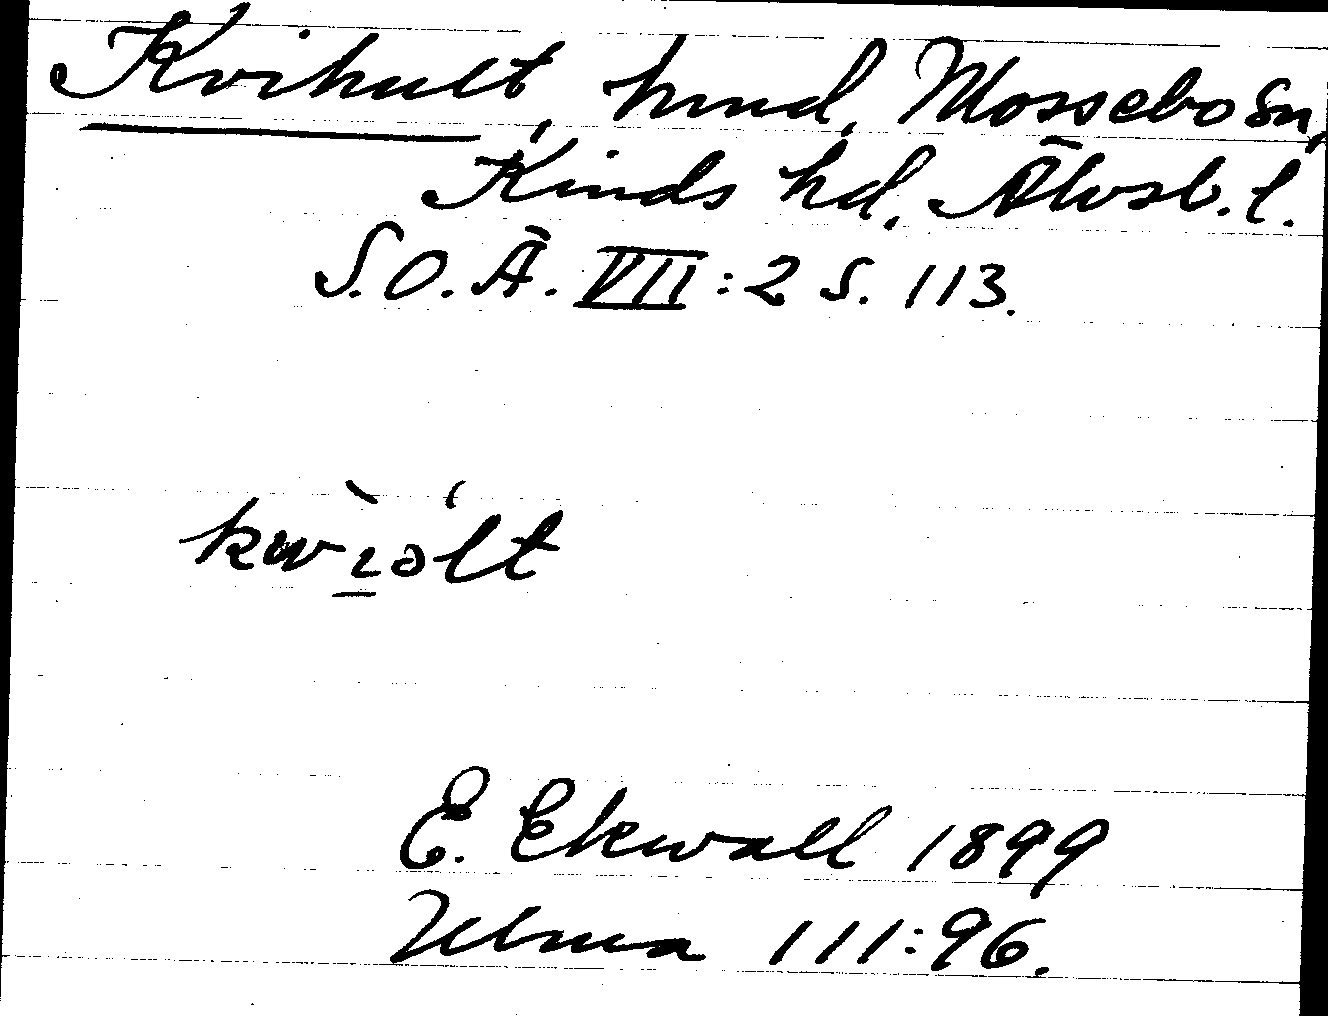 Kvihult, hmd, Mossebo sn,
Kinds hd. Älvsb. l.
S.O.Ä. VII:2 s. 113.
kwìólt
E. Ekwall 1899
Ulma 111:96.